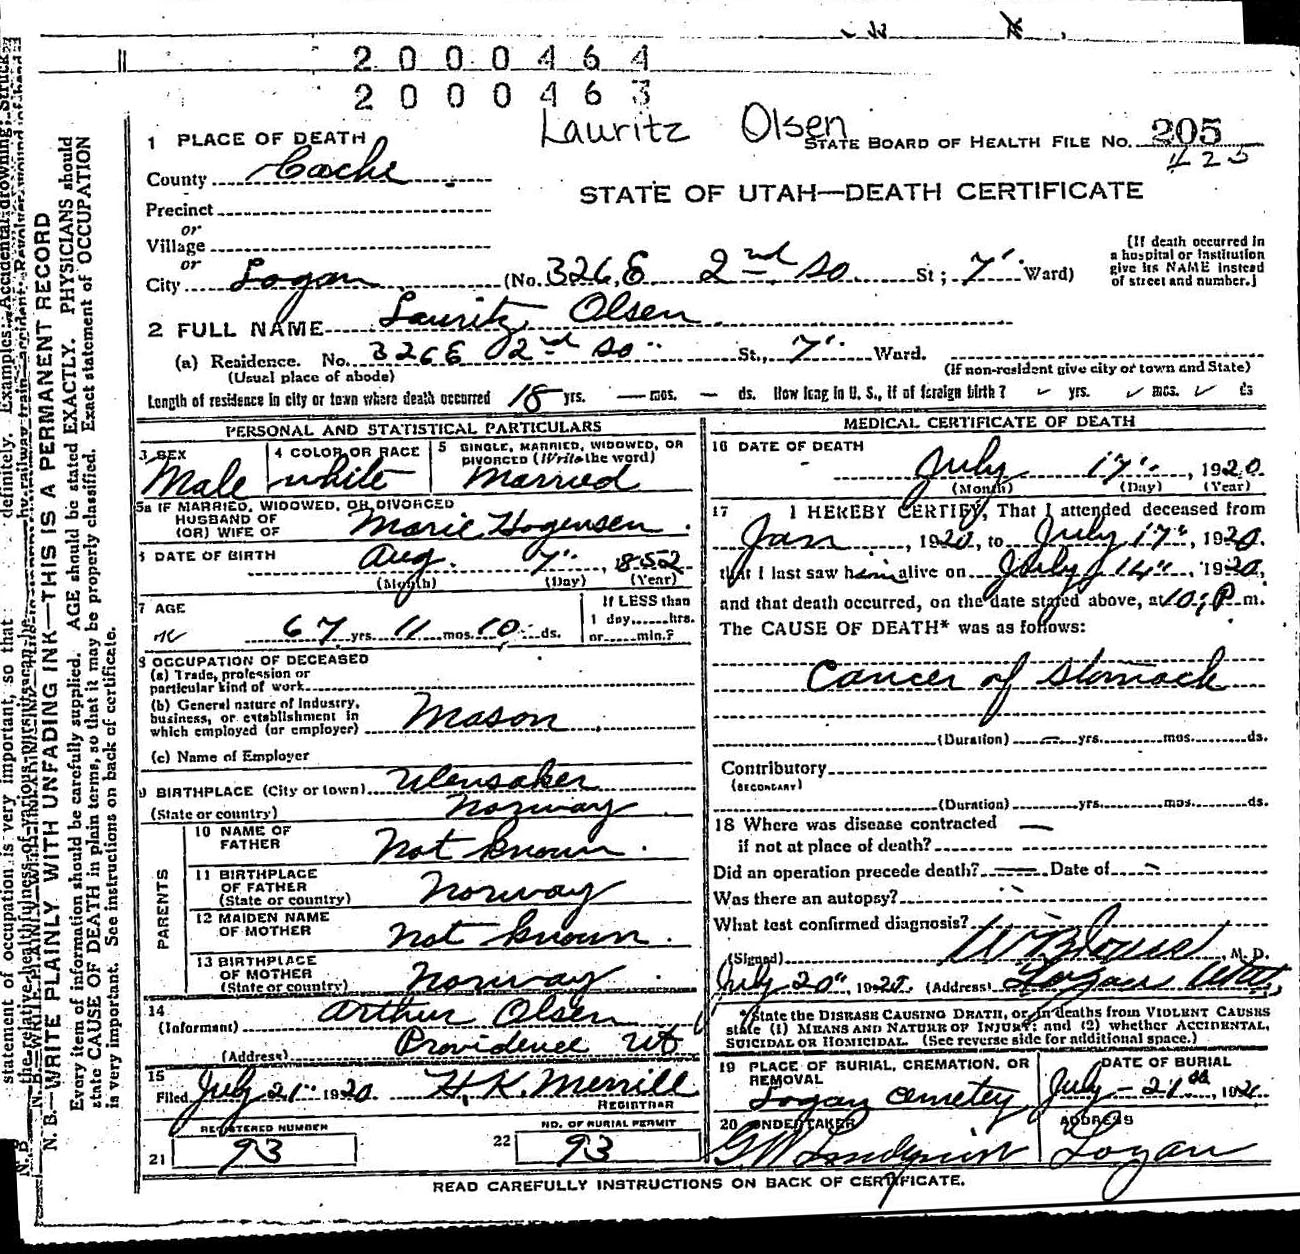 2000464
2000463
Lauritz Olsen
STATE BOARD OF HEALTH FILE No. 205
425
1 PLACE OF DEATH
County Cache
STATE OF UTAH—DEATH CERTIFICATE
Precinct
or
Village
or
City Logan (No. 326 E 2nd So St; 7" Ward)
[If death occurred in
a hospital or institution
give its NAME instead
of street and number.]
2 FULL NAME Lauritz Olsen
(a) Residence. No. 326 E 2nd So" St., 7" Ward.
(Usual place of abode)
(If non-resident give city or town and State)
Length of residence in city or town where death occurred 18 yrs. — mos. — ds. How long in U. S., if of foreign birth? yrs. mos. ds
PERSONAL AND STATISTICAL PARTICULARS
3 SEX
Male
4 COLOR OR RACE
white
5 SINGLE, MARRIED, WIDOWED, OR
DIVORCED (Write the word)
Married
5a IF MARRIED, WIDOWED, OR DIVORCED
HUSBAND OF
(OR) WIFE OF Marie Hogensen.
6 DATE OF BIRTH Aug. 7", 1852
(Month) (Day) (Year)
7 AGE
67 yrs. 11 mos. 10 ds.
If LESS than
1 day,......hrs.
or......min.?
8 OCCUPATION OF DECEASED
(a) Trade, profession or
particular kind of work
(b) General nature of Industry,
business, or establishment in
which employed (or employer) Mason
(c) Name of Employer
9 BIRTHPLACE (City or town) Ulensaker
(State or country) Norway
PARENTS
10 NAME OF
FATHER Not known.
11 BIRTHPLACE
OF FATHER
(State or country) Norway
12 MAIDEN NAME
OF MOTHER Not known.
13 BIRTHPLACE
OF MOTHER
(State or country) Norway
14
(Informant) Arthur Olsen
(Address) Providence Ut
15
Filed July 21" 1920 H. K. Merrill
REGISTRAR
REGISTERED NUMBER
21 93
NO. OF BURIAL PERMIT
22 93
MEDICAL CERTIFICATE OF DEATH
16 DATE OF DEATH
July 17", 1920
(Month) (Day) (Year)
17 I HEREBY CERTIFY, That I attended deceased from
Jan, 1920, to July 17", 1920.
that I last saw him alive on July 14", 1920,
and that death occurred, on the date stated above, at 10; P m.
The CAUSE OF DEATH* was as follows:
Cancer of Stomach
(Duration) — yrs. mos. ds.
Contributory
(SECONDARY)
(Duration) yrs. mos. ds.
18 Where was disease contracted —
if not at place of death?
Did an operation precede death? — Date of
Was there an autopsy?
What test confirmed diagnosis?
(Signed) , M. D.
July 20", 1920. (Address) Logan Utah,
*State the DISEASE CAUSING DEATH, or, in deaths from VIOLENT CAUSES
state (1) MEANS AND NATURE OF INJURY; and (2) whether ACCIDENTAL,
SUICIDAL OR HOMICIDAL. (See reverse side for additional space.)
19 PLACE OF BURIAL, CREMATION, OR
REMOVAL
Logan Cemetery
DATE OF BURIAL
July — 21st, 1920
20 UNDERTAKER
G W Lindquist
ADDRESS
Logan
READ CAREFULLY INSTRUCTIONS ON BACK OF CERTIFICATE.
N. B.—WRITE PLAINLY WITH UNFADING INK—THIS IS A PERMANENT RECORD
Every item of information should be carefully supplied. AGE should be stated EXACTLY. PHYSICIANS should
state CAUSE OF DEATH in plain terms, so that it may be properly classified. Exact statement of OCCUPATION
is very important. See instructions on back of certificate.
statement of occupation is very important, so that definitely. Examples: Accidental drowning; Struck